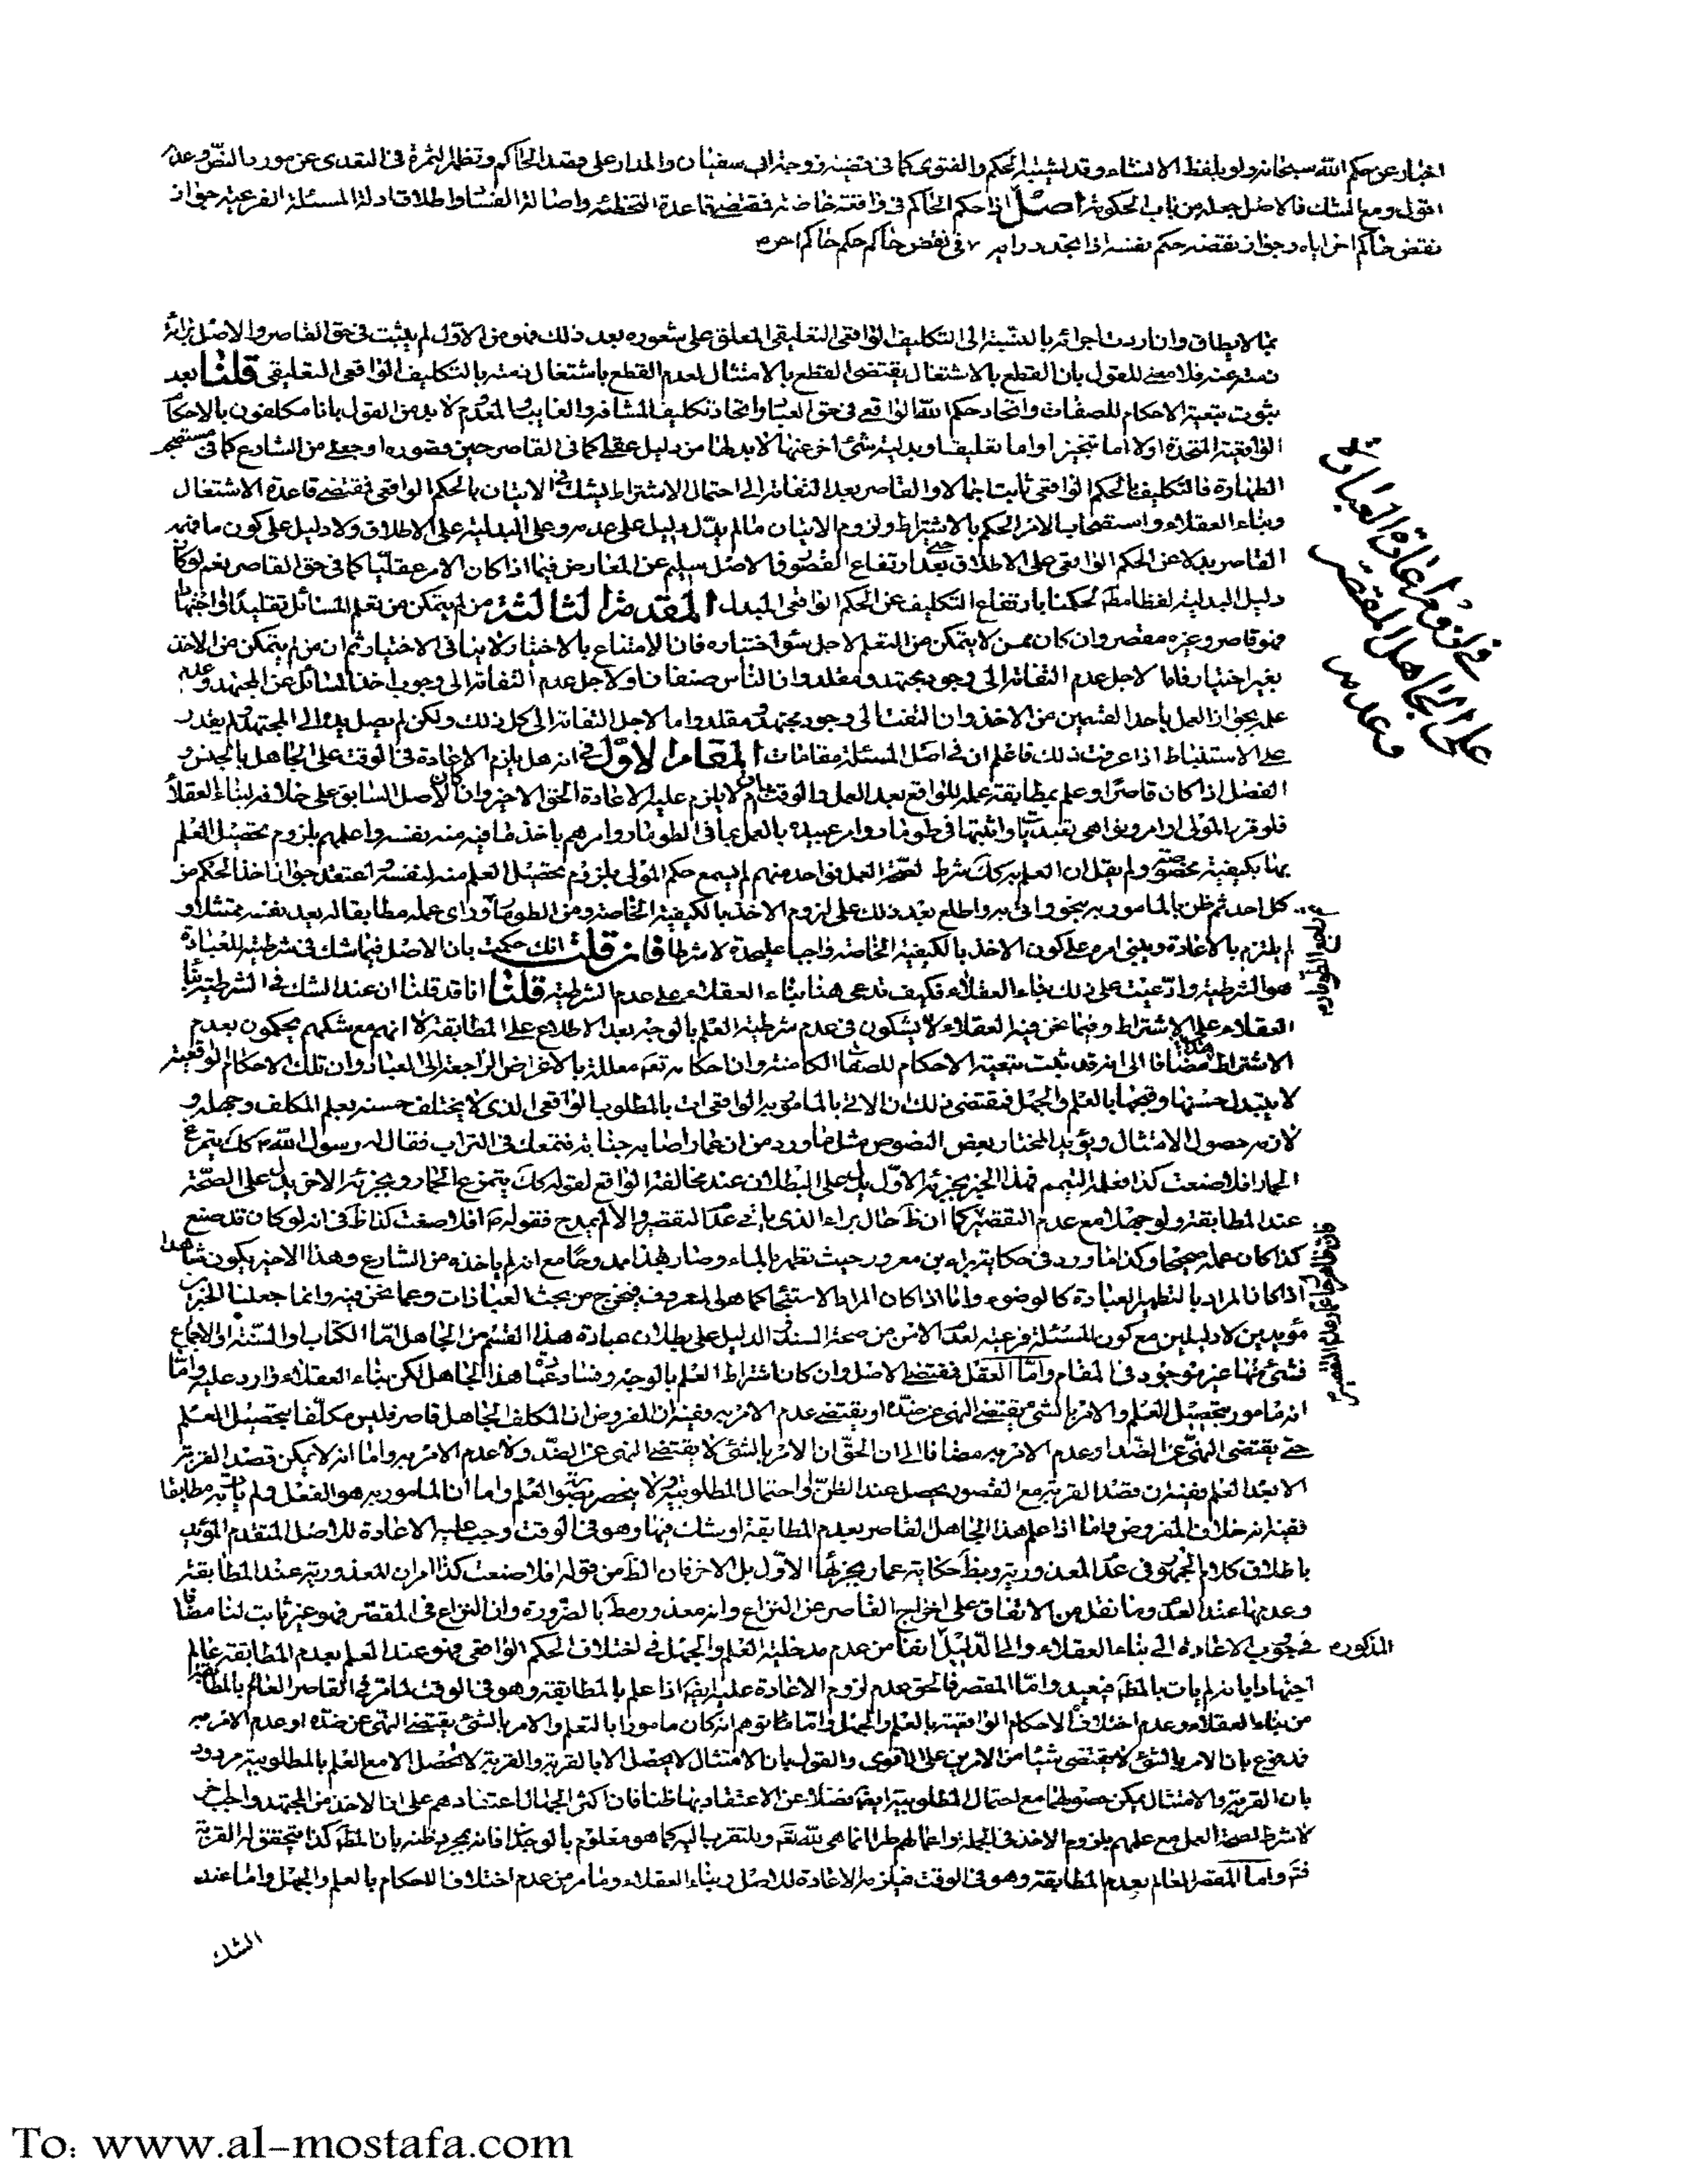 اخبار عن حكم الله سبحانه ولو بلفظ الانشاء وقد يشتبه الحكم والفتوى كما فى قضيته زوجة ابى سفيان والمدار على قصد الحاكم وتظهر الثمرة فى التعدى عن مورد النص وعدمه
اقول ومع الشك فالاصل عدمه من باب الحكومة اصل اذا حكم الحاكم فى واقعة خاصة فمقتضى قاعدة التخطئة واصالة الفساد واطلاق ادلة المسئلة الفرعية جواز
نقض حاكم اخر اياه وجواز نقضه حكم نفسه اذا تجدد رايه فى نقض حاكم حكم حاكم اخر
بما لا يطاق وان اردت اجرائه بالنسبة الى التكليف الواقعى التعليقى المعلق على شعوره بعد ذلك فهو من الاول لم يثبت فى حق القاصر والاصل برائة
ذمته عنه فلا معنى للقول بان القطع بالاشتغال يقتضى القطع بالامتثال لعدم القطع باشتغال ذمته بالتكليف الواقعى التعليقى قلنا بعد
ثبوت تبعية الاحكام للصفات واتحاد حكم الله الواقعى فى حق العباد واتحاد تكليف المشافه والغايب والمعدوم لا بد من القول بانا مكلفون بالاحكام
الواقعية المتحدة اولا اما تنجيزا واما تعليقا وبدلية شئ اخر عنها لا بد لها من دليل عقلى كما فى القاصر حين قصوره او جعلى من الشارع كما فى مستصحب
الطهارة فالتكليف بالحكم الواقعى ثابت اجمالا والقاصر بعد التفاته الى احتمال الاشتراط يشك فى الاتيان بالحكم الواقعى فمقتضى قاعدة الاشتغال
وبناء العقلاء واستصحاب الامر الحكم بالاشتراط ولزوم الاتيان ما لم يدل دليل على عدمه وعلى البدلية على الاطلاق ولا دليل على كون ما فهمه
القاصر بدلا عن الحكم الواقعى على الاطلاق حتى بعد ارتفاع القصور فالاصل سليم عن المعارض فيما اذا كان الامر عقليا كما فى حق القاصر نعم لو كان
دليل البدلية لفظا مطلقا لحكمنا بارتفاع التكليف عن الحكم الواقعى المبدل المقدمة الثالثة من لم يتمكن من تعلم المسائل تقليدا او اجتهادا
فهو قاصر وغيره مقصر وان كان ممن لا يتمكن من التعلم لاجل سوء اختياره فان الامتناع بالاختيار لا ينافى الاختيار ثم ان من لم يتمكن من الاخذ
بغير اختيار فاما لاجل عدم التفاته الى وجود مجتهد ومقلد وان الناس صنفان او لاجل عدم التفاته الى وجوب اخذ المسائل عن المجتهد وعدم
علمه بجواز العمل باحد القسمين من الاخذ وان التفت الى وجود مجتهد ومقلد واما لاجل التفاته الى كل ذلك ولكن لم يصل يده الى المجتهد ولم يقدر
على الاستنباط اذا عرفت ذلك فاعلم ان فى اصل المسئلة مقامات المقام الاول فى انه هل يلزم الاعادة فى الوقت على الجاهل بالجنس و
الفصل اذا كان قاصرا وعلم بمطابقة عمله للواقع بعد العمل والوقت باق ام لا يلزم عليه الاعادة الحق الاخير وان كان الاصل السابق على خلافه لبناء العقلاء
فلو قرر المولى اوامر ونواهى تعبدية واثبتها فى طومار وامر عبيده بالعمل بما فى الطومار وامرهم باخذ ما فيه منه بنفسه واعلمهم بلزوم تحصيل العلم
بها بكيفية مخصوصة ولم يقل ان العلم بتركك شرط لصحة العمل فواحد منهم لم يسمع حكم المولى بلزوم تحصيل العلم منه لنفسه اعتقد جواز اخذ الحكم من
كل احد ثم ظن بالمامور به بنحو واتى به واطلع بعد ذلك على لزوم الاخذ بالكيفية الخاصة ومن الطومار وراى عمله مطابقا له يعد نفسه ممتثلا و
لم يلتزم بالاعادة ويبنى امره على كون الاخذ بالكيفية الخاصة واجبا عليحدة لا شرطا فان قلت انك حكمت بان الاصل فيما شك فى شرطيته للعبادة
هو الشرطية وادعيت على ذلك بناء العقلاء فكيف تدعى هنا بناء العقلاء على عدم الشرطية قلنا انا قد قلنا ان عند الشك فى الشرطية بناء
العقلاء على الاشتراط وفيما نحن فيه العقلاء لا يشكون فى عدم شرطية العلم بالوجه بعد الاطلاع على المطابقة لا انهم مع شكهم يحكمون بعدم
الاشتراط هذا مضافا الى انه قد ثبت تبعية الاحكام للصفات الكامنة وان احكامه تعم معللة بالاغراض الراجعة الى العباد وان تلك الاحكام الواقعية
لا يتبدل حسنها وقبحها بالعلم والجهل فمقتضى ذلك ان الاتى بالمامور به الواقعى ات بالمطلوب الواقعى الذى لا يختلف حسنه بعلم المكلف وجهله و
لازمه حصول الامتثال ويؤيد المختار بعض النصوص مثل ما ورد من ان عمارا اصابه جنابة فتمعك فى التراب فقال له رسول الله ص كك يتمرغ
الحمار افلا صنعت كذا فعلمه التيمم فهذا الخبر بجزئه الاول يدل على البطلان عند مخالفة الواقع لقوله كك يتمرغ الحمار وبجزئه الاخر يدل على الصحة
عند المطابقة ولو جهلا مع عدم التقصير كما ان ظ حال براء الذى ياتى عدم التقصير والا لم يمدح فقوله ع افلا صنعت كذا ظ فى انه لو كان قد صنع
كذا كان عمله صحيحا وكذا ما ورد فى حكاية براء بن معرور حيث تطهر بالماء وصار بهذا ممدوحا مع انه لم ياخذه من الشارع وهذا الاخير يكون شاهدا
اذا كان المراد بالتطهير العبادة كالوضوء واما اذا كان المراد الاستنجاء كما هو المعروف فيخرج من بحث العبادات وعما نحن فيه وانما جعلنا الخبرين
مؤيدين لا دليلين مع كون المسئلة فرعية لعدم الامن من صحة السند فى الدليل على بطلان عبادة هذا القسم من الجاهل اما الكتاب او السنة او الاجماع
فشئ منها غير موجود فى المقام واما العقل فمقتضى الاصل وان كان اشتراط العلم بالوجه وفساد عبادة هذا الجاهل لكن بناء العقلاء وارد عليه واما
انه مامور بتحصيل العلم والامر بالشئ يقتضى النهى عن ضده او يقتضى عدم الامر به وفيه ان المفروض ان المكلف الجاهل قاصر فليس مكلفا بتحصيل العلم
حتى يقتضى النهى عن الضد او عدم الامر به مضافا الى ان الحق ان الامر بالشئ لا يقتضى النهى عن الضد ولا عدم الامر به واما انه لا يمكن قصد القربة
الا بعد العلم ففيه ان قصد القربة مع القصور يحصل عند الظن او احتمال المطلوبية ولا ينحصر بصورة العلم واما ان المامور به هو الفعل ولم يات به مطابقا
ففيه انه خلاف المفروض واما اذا علم هذا الجاهل القاصر بعدم المطابقة او يشك فيها وهو فى الوقت وجب عليه الاعادة للاصل المتقدم المؤيد
باطلاق كلام الجمهور فى عدم المعذورية وبظ حكاية عمار بجزئها الاول بل الاخر فان الظ من قوله افلا صنعت كذا
وعدمها عند العدم وما نقل من الاتفاق على اخراج القاصر عن النزاع وانه معذور مط بالضرورة وان النزاع فى المقصر فهو غير ثابت لنا مضافا
المذكوره فى وجوب الاعادة الى بناء العقلاء والى الدليل انفا من عدم مدخلية العلم والجهل فى اختلاف الحكم الواقعى فهو عند العلم بعدم المطابقة عالم
اجتهادا بانه لم يات بالمط فيعيد واما المقصر فالحق عدم لزوم الاعادة عليه ايضا اذا علم بالمطابقة وهو فى الوقت لما مر فى القاصر العالم بالمطابقة
من بناء العقلاء وعدم اختلاف الاحكام الواقعية بالعلم والجهل واما ما توهم انه كان مامورا بالتعلم والامر بالشئ يقتضى النهى عن ضده او عدم الامر به
فمدفوع بان الامر بالشئ لا يقتضى شيئا من الامرين على الاقوى والقول بان الامتثال لا يحصل الا بالقربة والقربة لا تحصل الا مع العلم بالمطلوبية مردود
بان القربة والامتثال يمكن حصولهما مع احتمال المطلوبية ايضا فضلا عن الاعتقاد بها ظنا فان اكثر الجهال اعتقادهم على ان الاخذ من المجتهد واجب اخر
لا شرط لصحة العمل مع علمهم بلزوم الاخذ فى الجملة واعمالهم طرا انما هى لله تعم وللتقرب اليه كما هو معلوم بالوجدان فانه بمجرد ظنه بان المط كذا يتحقق له القربة
فتم واما المقصر العالم بعدم المطابقة وهو فى الوقت فيلزمه الاعادة للاصل وبناء العقلاء وما مر من عدم اختلاف الاحكام بالعلم والجهل واما عند
الشك
فى لزوم اعادة العبادة
على الجاهل المقصر
وعدمه
To: www.al-mostafa.com